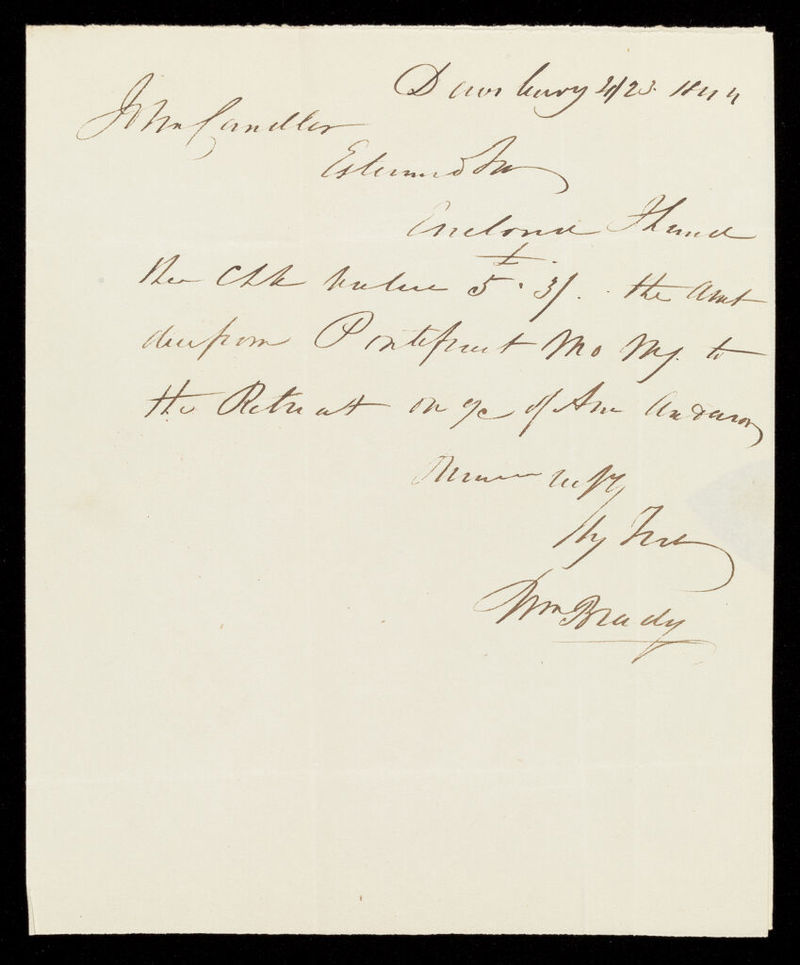 Dewsbury 2/23. 1844
John Candler
Esteemed Frd
Enclosed I hand
thee Chk value £5. 3/. the Amt
due from Pontefract Mo Mg. to
the Retreat on a/c of Ann Anderson
resfy
thy Frd
Wm Brady